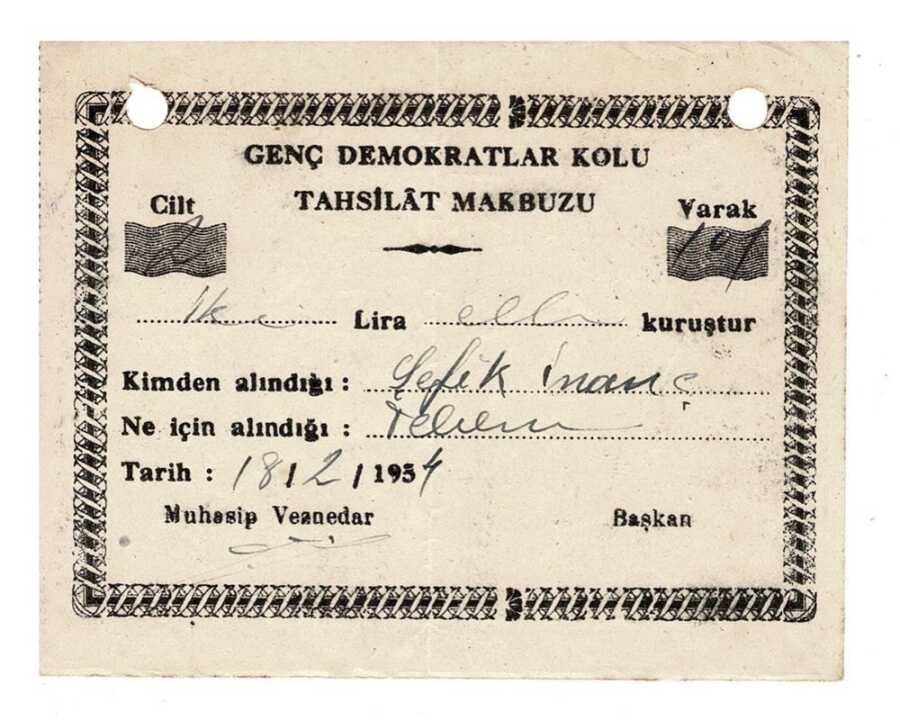 GENÇ DEMOKRATLAR KOLU
TAHSİLÂT MAKBUZU
Cilt
2
Varak
İki Lira elli kuruştur
Kimden alındığı : Şefik İnanç
Ne için alındığı :
Tarih : 18/2/1954
Muhasip Veznedar
Başkan